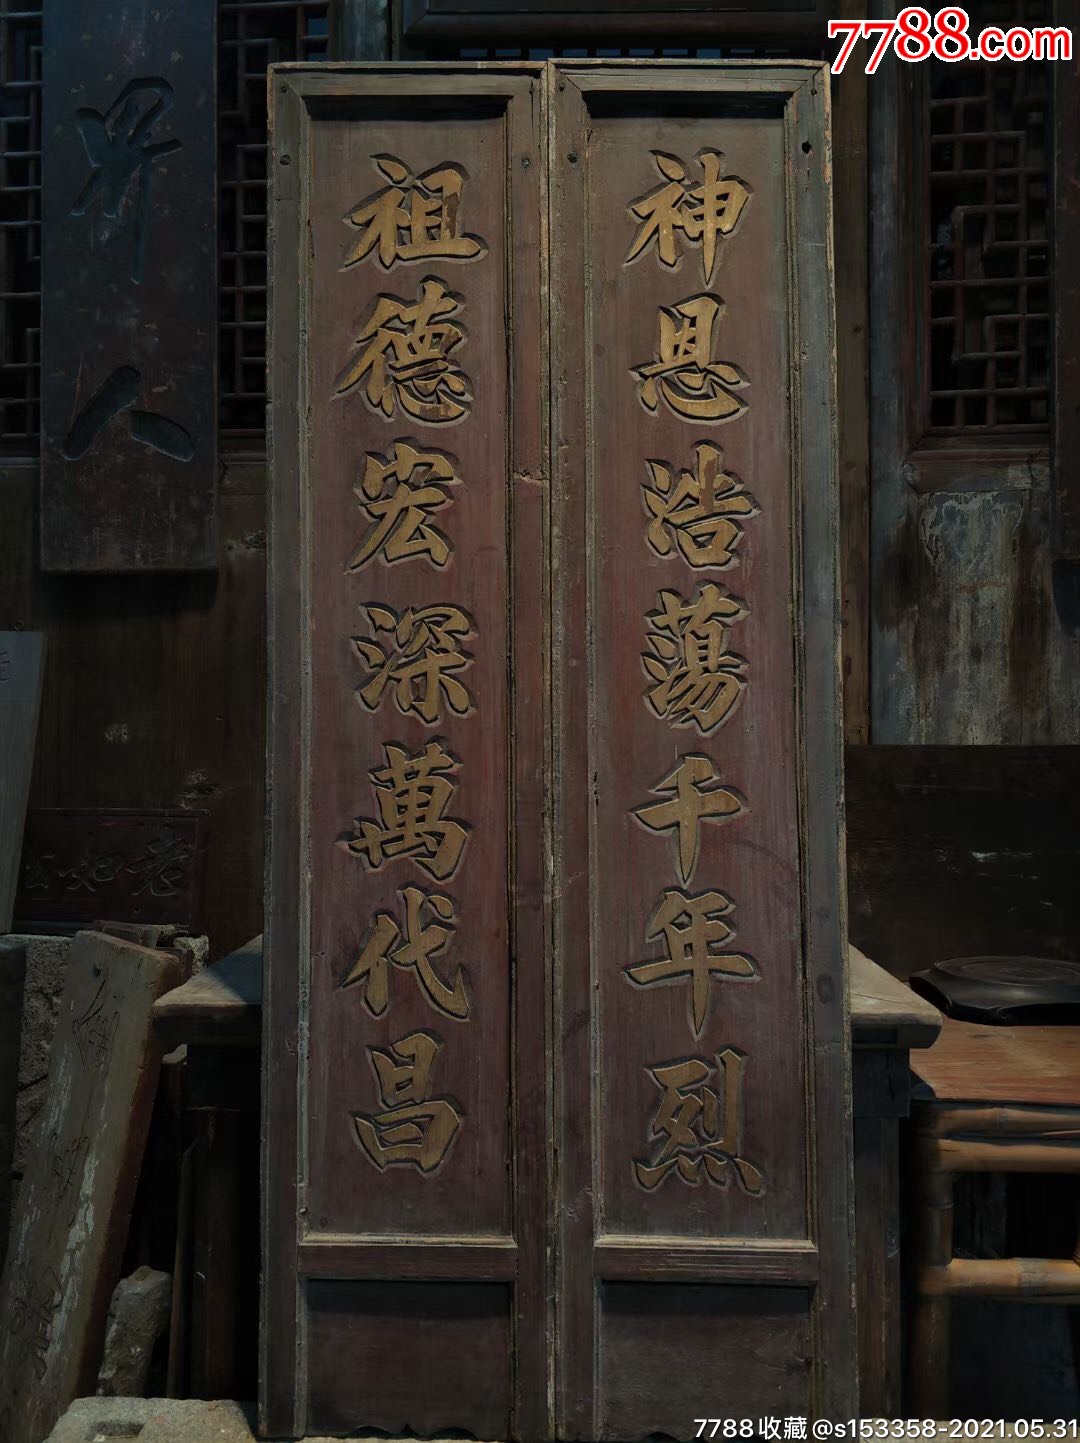 7788.com
神恩浩蕩千年烈
祖德宏深萬代昌
人
7788收藏@s153358-2021.05.31